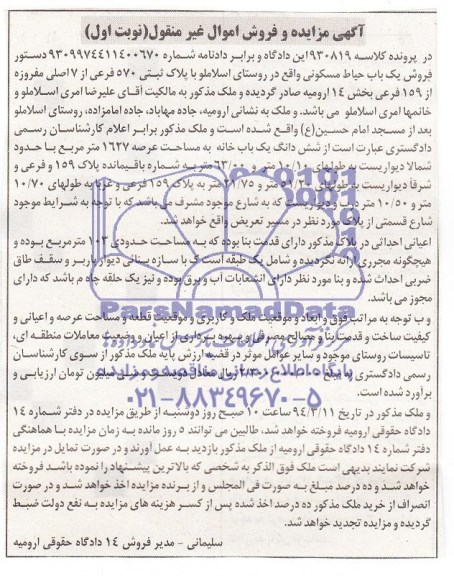 آگهی مزایده و فروش اموال غیر منقول(نوبت اول)
در پرونده کلاسه ۹۳۰۸۱۹ این دادگاه و برابر دادنامه شماره ۹۳۰۹۹۷۴۴۱۱۴۰۰۶۷۰ دستور
فروش یک باب حیاط مسکونی واقع در روستای اسلاملو با پلاک ثبتی ۵۷۰ فرعی از ۷ اصلی مفروزه
از ۱۵۹ فرعی بخش ۱۴ ارومیه صادر گردیده و ملک مذکور به مالکیت آقای علیرضا امری اسلاملو و
خانمها امری اسلاملو می باشد. و ملک به نشانی ارومیه، جاده مهاباد، جاده امامزاده، روستای اسلاملو
بعد از مسجد امام حسین(ع) واقع شده است و ملک مذکور برابر اعلام کارشناسان رسمی
دادگستری عبارت است از شش دانگ یک باب خانه به مساحت عرصه ۱۶۲۷ متر مربع با حدود
شمالا دیواریست به طولهای ۱۰/۱۰ متر و ۶۳/۰۰ متر به شماره باقیمانده پلاک ۱۵۹ و فرعی و
شرقا دیواریست به طولهای متر و ۲۱/۷۵ متر به پلاک ۱۵۹ فرعی و غربا به طولهای ۱۰/۷۰
متر و ۱۰/۵۰ متر درب و دیواریست که به شارع موجود مشرف می باشد که با توجه به شرایط موجود
شارع قسمتی از پلاک مورد نظر در مسیر تعریض واقع خواهد شد.
اعیانی احداثی در پلاک مذکور دارای قدمت بنا بوده که به مساحت حدودی ۱۰۳ متر مربع بوده و
هیچگونه مجرزی ارائه نگردیده و شامل یک طبقه است که با سازه بنائی دیوار باربر و سقف طاق
ضربی احداث شده و بنا مورد نظر دارای انشعابات آب و برق بوده و نیز یک حلقه چاه می باشد که دارای
مجوز می باشد.
و با توجه به مراتب فوق و ابعاد و موقعیت ملک و کاربری و موقعیت قطعه و مساحت عرصه و اعیانی و
کیفیت ساخت و قدمت بنا و مصالح مصرفی و بهره برداری از اعیان و وضعیت معاملات منطقه ای،
تاسیسات روستای موجود و سایر عوامل موثر در قضیه ارزش پایه ملک مذکور از سوی کارشناسان
رسمی دادگستری به مبلغ ریال معادل میلیون تومان ارزیابی و
برآورد شده است.
و ملک مذکور در تاریخ ۹۴/۳/۱۱ ساعت ۱۰ صبح روز دوشنبه از طریق مزایده در دفتر شماره ۱۴
دادگاه حقوقی ارومیه فروخته خواهد شد، طالبین می توانند ۵ روز مانده به زمان مزایده با هماهنگی
دفتر شماره ۱۴ دادگاه حقوقی ارومیه از ملک مذکور بازدید به عمل آورند و در صورت تمایل در مزایده
شرکت نمایند بدیهی است ملک فوق الذکر به شخصی که بالاترین پیشنهاد را نموده باشد فروخته
خواهد شد و ده درصد مبلغ به صورت فی المجلس و از برنده مزایده اخذ خواهد شد و در صورت
انصراف از خرید ملک مذکور ده درصد اخذ شده پس از کسر هزینه های مزایده به نفع دولت ضبط
گردیده و مزایده تجدید خواهد شد.
سلیمانی - مدیر فروش ۱۴ دادگاه حقوقی ارومیه
ParsNamadData
پایگاه اطلاع رسانی مناقصه و مزایده
۰۲۱-۸۸۳۴۹۶۷۰-۵